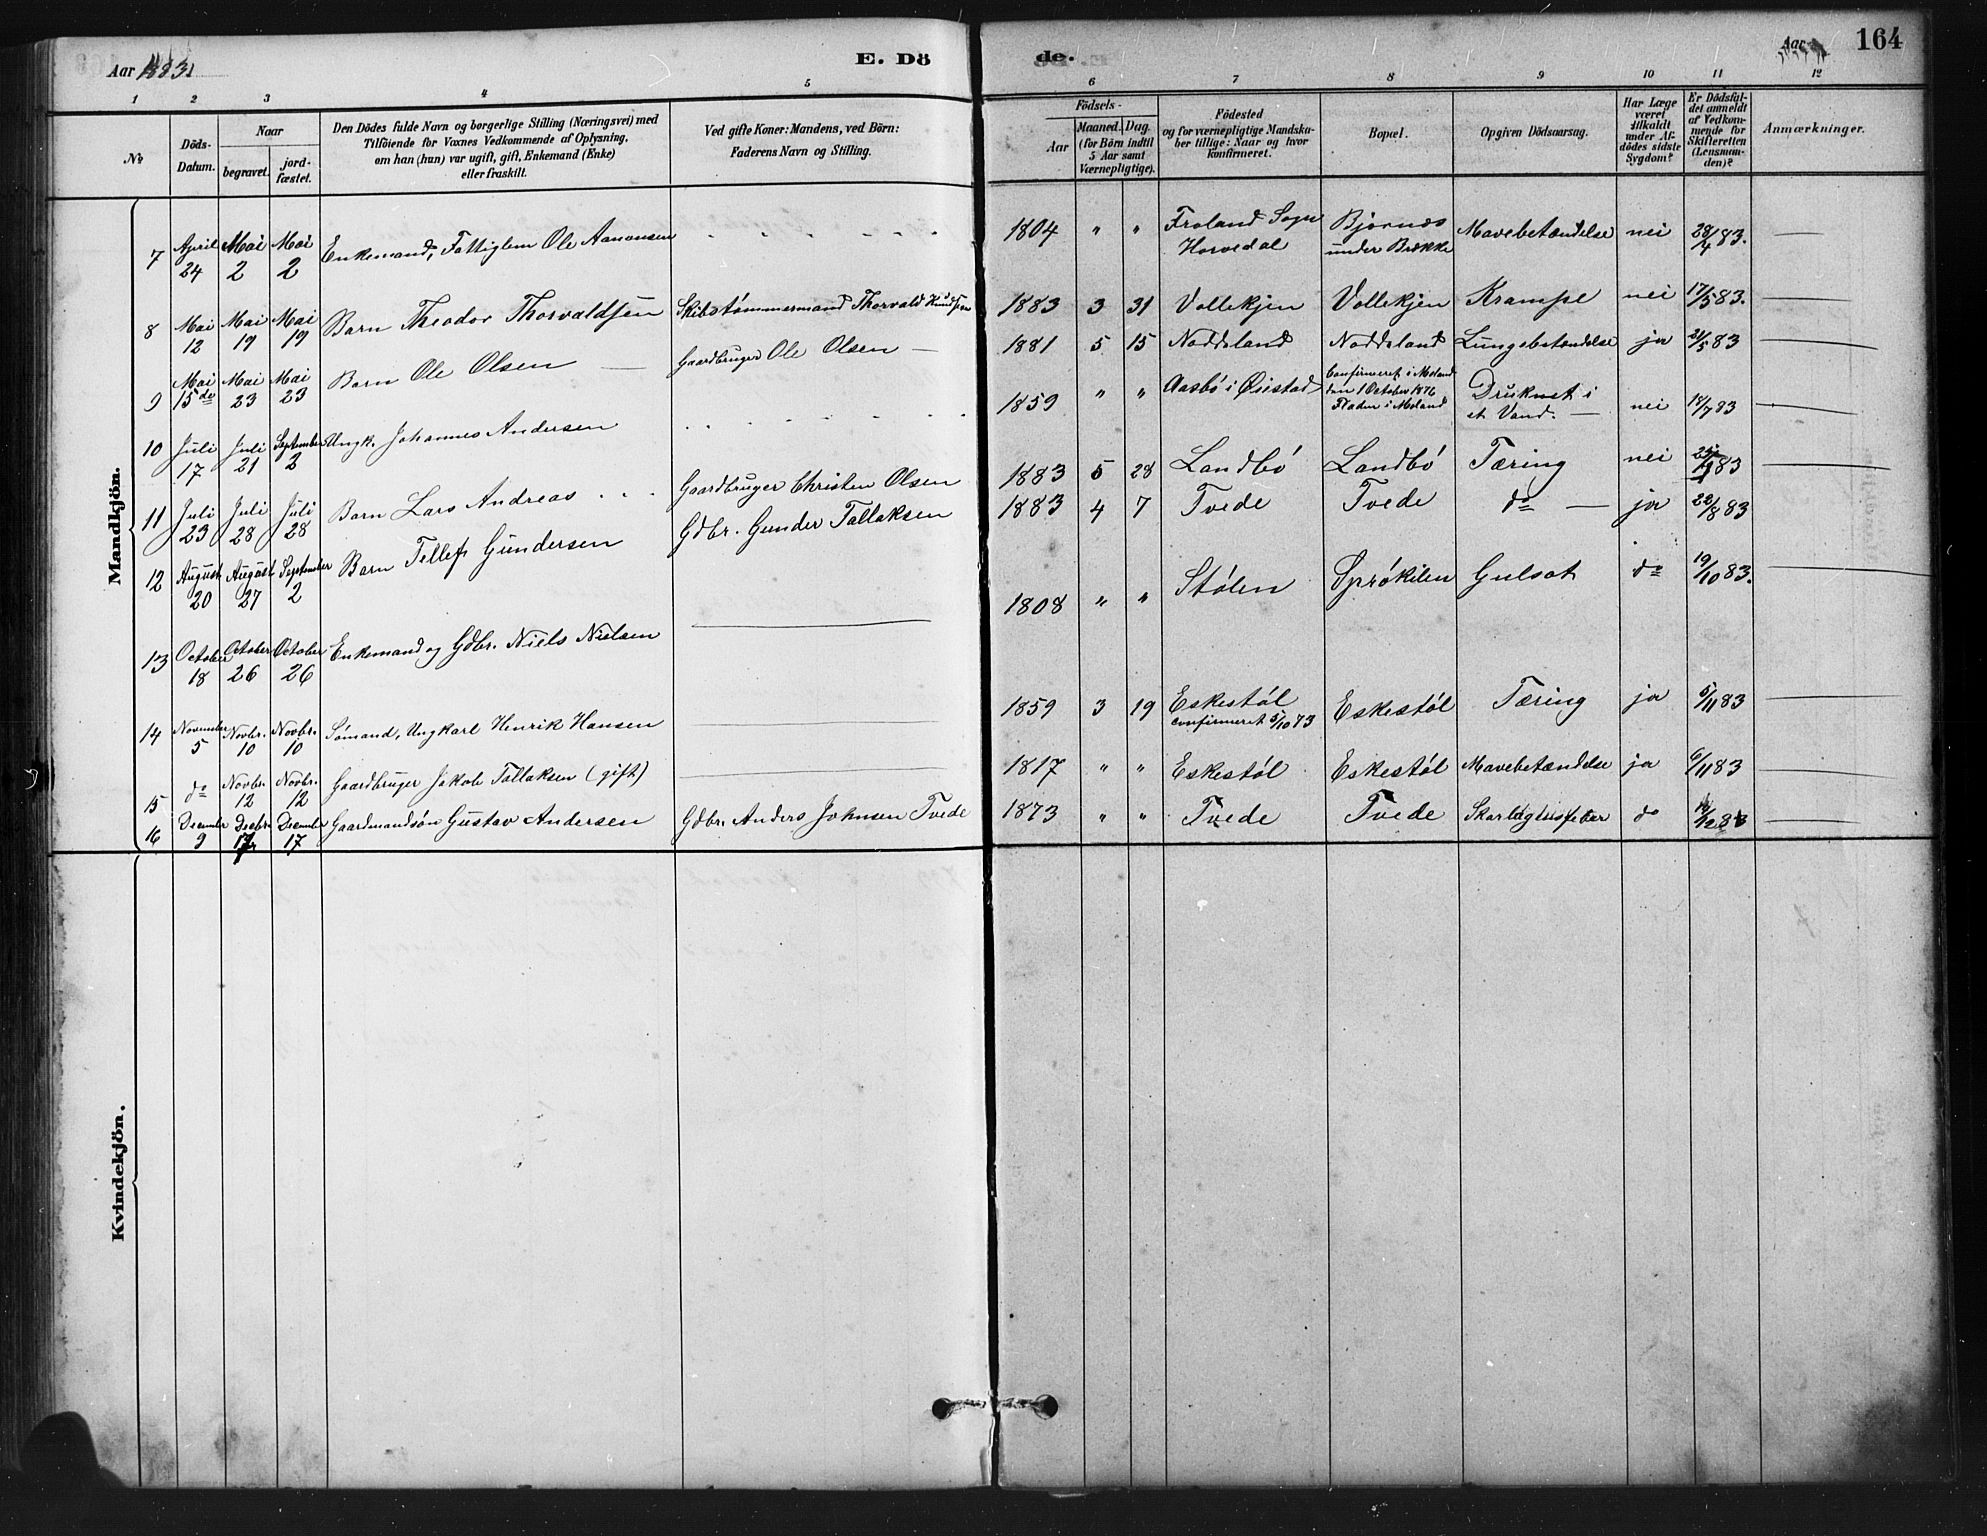 Aar 1883.
E. Dö
de.
Aar
164
1 2 3 4 5
6 7 8 9 10 11 12
№
Döds-
Datum.
Naar
begravet.
jord-
fæstet.
Den Dödes fulde Navn og borgerlige Stilling (Næringsvei) med
Tilföiende for Voxnes Vedkommende af Oplysning,
om han (hun) var ugift, gift, Enkemand (Enke)
eller fraskilt.
Ved gifte Koner: Mandens, ved Börn:
Faderens Navn og Stilling.
Födsels-
Aar
Maaned. Dag.
(for Börn indtil
5 Aar samt
Værnepligtige).
Födested
og for værnepligtige Mandska-
ber tillige: Naar og hvor
konfirmeret.
Bopæl.
Opgiven Dödsaarsag.
Har Læge
været
tilkaldt
under Af-
dödes sidste
Sygdom?
Er Dödsfal-
det anmeldt
af Vedkom-
mende for
Skifteretten
(Lensman-
den)?
Anmærkninger.
Mandkjön.
7 April 24 Mai 2 Mai 2 Enkemand, Fattiglem Ole Aanonsen
1804 " " Froland Sogn Horvedal Bjørnæs under Brække Mavebetændelse nei 28/4 83.
8 Mai 12 Mai 19 Mai 19 Barn Theodor Thorvaldsen Skibstømmermand Thorvald Knudsen
1883 3 31 Vollekjen Vollekjen Krampe nei 17/5 83.
9 Mai 15de Mai 23 Mai 23 Barn Ole Olsen Gaardbruger Ole Olsen
1881 5 15 Noddeland Noddeland Lungebetændelse ja 21/5 83
10 Juli 17 Juli 21 September 2 Ungk. Johannes Andersen
1859 " " Aasbø i Øiestad Confirmeret i Moland den 1 October 1876 Flaten i Moland Druknet i et Vand. nei 18/7 83
11 Juli 23 Juli 28 Juli 28 Barn Lars Andreas Gaardbruger Christen Olsen
1883 5 28 Landbø Landbø Tæring nei 83
12 August 20 August 27 September 2 Barn Tellef Gundersen Gdbr. Gunder Tallaksen
1883 4 7 Tvede Tvede do ja 22/8 83
13 October 18 October 26 October 26 Enkemand og Gdbr. Niels Nielsen
1808 " " Stølen Sprøkilen Gulsot do 19/10 83.
14 November 5 Novbr. 10 Novbr. 10 Sømand, Ungkarl Henrik Hansen
1859 3 19 Eskestøl confirmeret 5/10 73 Eskestøl Tæring ja 5/11 83
15 do Novbr. 12 Novbr. 12 Gaardbruger Jakob Tallaksen (gift)
1817 " " Eskestøl Eskestøl Mavebetændelse ja 6/11 83
16 December 9 Decbr. 17 December 17 Gaardmandsøn Gustav Andersen Gdbr. Anders Johnsen Tvede
1873 " " Tvede Tvede Skarlagensfeber do 83
Kvindekjön.